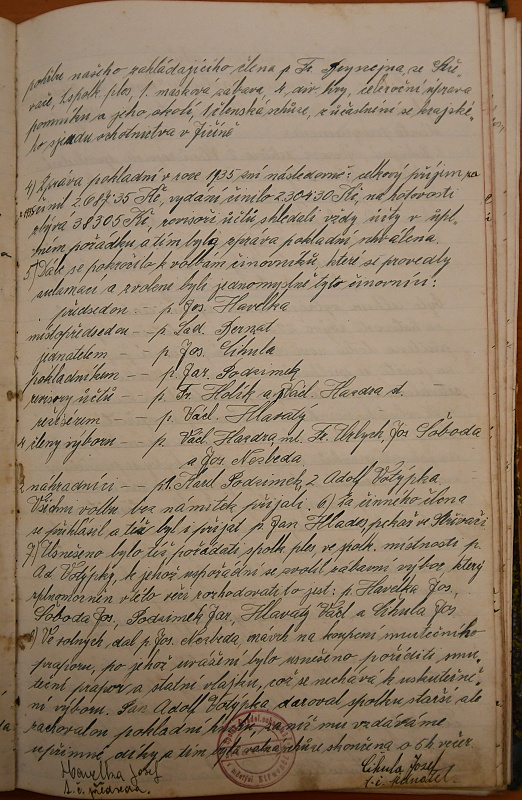 pohřbu našeho zakládajícího člena p. Fr.
1 spolk. ples, 1. maškorá zábava, 4 div. hry, úprava
pomníku a jeho okolí, 1 členská schůze, súčastnění se krajské-
ho sjezdu ochotnictva v Jičíně
4) Zpráva pokladní v roce 1935 zní následovně: celkový příjem
činil 2.687.35 Kč, vydání činilo 2304.30 Kč, na hotovosti
zbývá 383.05 Kč, revisoři účtů shledali vždy účty v úpl-
ném pořádku a tím byla zpráva pokladní schválena.
5) Dále se pokročilo k volbám činovníků, které se provedly
aklamací a zvoleni byli jednomyslně tyto činovníci:
předsedou - p. Jos. Havelka
místopředsedou - p. Lad. Bernat
jednatelem - - p. Jos. Cihula
pokladníkem - - p. Jar. Podzimek
revisory účtů - p. Fr. Holík a Václ. Hardra st.
režisérem - p. Václ. Hlavatý
4 členy výboru - p. Václ. Hardra ml. Fr. Jos. Sloboda
a Jos. Nezbeda
2 náhradníci - pp. Karel Podzimek, 2. Adolf Votýpka.
Všichni volbu bez námitek přijali. 6) Za činného člena
se přihlásil a též byl i přijat p. Jan Hlades, pekař ve
7) Usneseno bylo též pořádati spolk. ples ve spolk. místnosti p.
Ad. Votýpky, k jehož uspořádání se zvolil zábavní výbor, který
zplnomocněn v této věci rozhodovati to jest: p. Havelka Jos,
Sloboda Jos., Podzimek Jar, Hlavatý Václ a Cihula Jos.
8) Ve volných, dal p. Jos. Nezbeda návrh na koupení smutečního
praporu, po jehož uvážení bylo usneseno poříditi smu-
teční prapor a státní vlajku, což se nechává k uskutečně-
ní výboru. Pan Adolf Votýpka daroval spolku starší ale
zachovalou pokladní za níž mu vzdáváme
upřímné díky a tím byla valná schůze skončena o 5 h večer.
Havelka Josef
t. č. předseda.
Cihula Josef
t. č. jednatel.